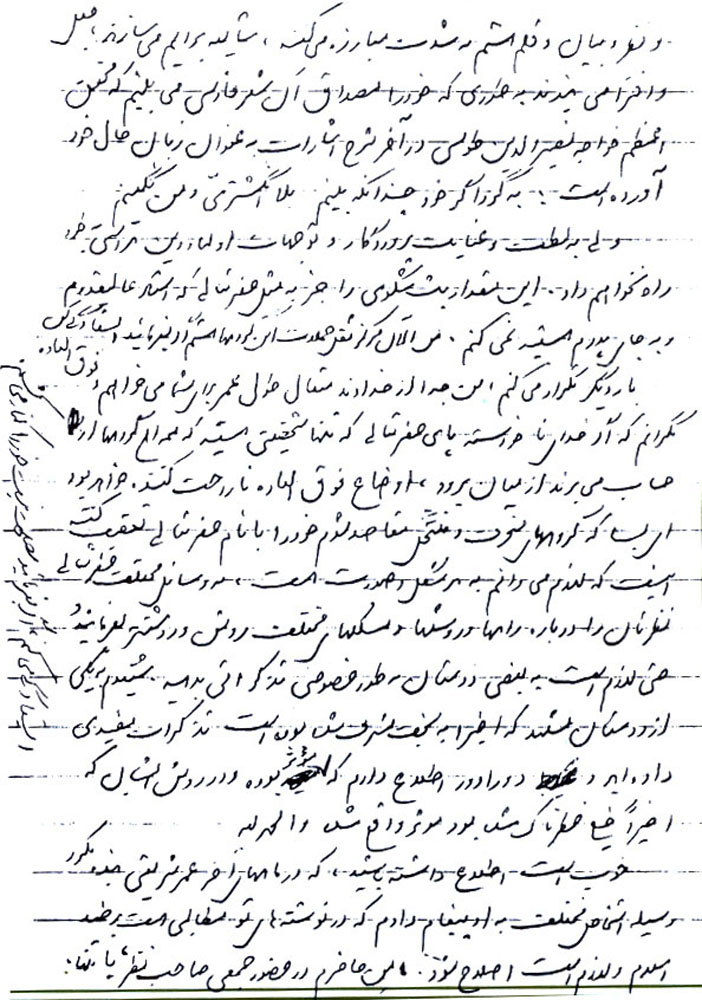 و نفر و بیان و قلم است به شدت مبارزه می‌کنند، شایعه برایم می‌سازند، جعل
و افترا می‌بندند به طوری که خود را مصداق آن شعر فارسی می‌بینم که محقق
اعظم خواجه نصیرالدین طوسی در آخر شرح اشارات به عنوان زبان حال خود
آورده است: به گرداگرد خود چندانکه بینم بلا انگشتری و من نگینم
ولی به لطف و عنایت پروردگار و توجهات اولیاء دین هراسی بخود
راه نخواهم داد. این مقدار بث شکوی را جز به مثل حضرتعالی که استاد عالیقدرم
و به جای پدرم هستید نمی‌کنم. من الآن مرکز ثقل حملات این گروهها هستم
بار دیگر تکرار می‌کنم، من جداً از خداوند متعال طول عمر برای شما می‌خواهم و
نگرانم که اگر خدای نا خواسته پای حضرتعالی که تنها شخصیتی هستید که همه این گروهها از او
حساب می‌برند از میان برود، اوضاع فوق العاده ناراحت کننده خواهد بود
ای بسا که گروههای منحرف و مقاصد شوم خود را با نام حضرتعالی تعقیب کنند
اینست که لازم می‌دانم به هر شکل و صورت است، به وسائل مختلف حضرتعالی
نظرتان را درباره راهها و روشها و مسلکهای مختلف روشن و روشنتر بفرمائید
حتی لازم است به بعضی دوستان به طور خصوصی تذکراتی بدهید. شنیدم به یکی
از دوستان هستند که اخیراً به نجف مشرف شده بودند است تذکرات مفیدی
داده‌اید و دورادور اطلاع دارم که مؤثر بوده و در روش ایشان که
اخیراً خیلی خطرناک شده بود مؤثر واقع شد والحمدلله
خوب است اطلاع داشته باشید، که در ماههای آخر عمر شریعتی چند بار
وسیله اشخاص مختلف به او پیغام دادم که در نوشته‌های تو مطالبی است برضد
اسلام و لازم است اصلاح شود. من حاضرم در حضور جمعی صاحب نظر یا تنها